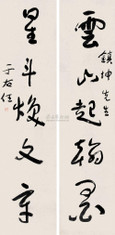 雲山起翰墨
鎮坤先生
星斗煥文章
于右任